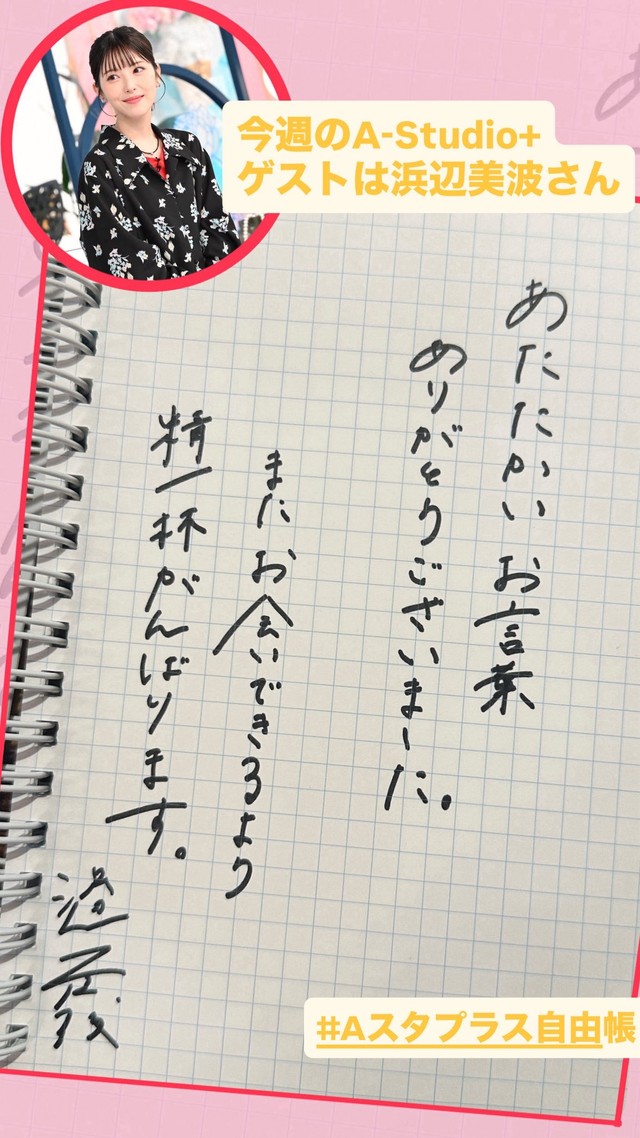 今週のA-Studio+
ゲストは浜辺美波さん
あたたかいお言葉
ありがとうございました。
またお会いできるよう
精一杯がんばります。
#Aスタプラス自由帳